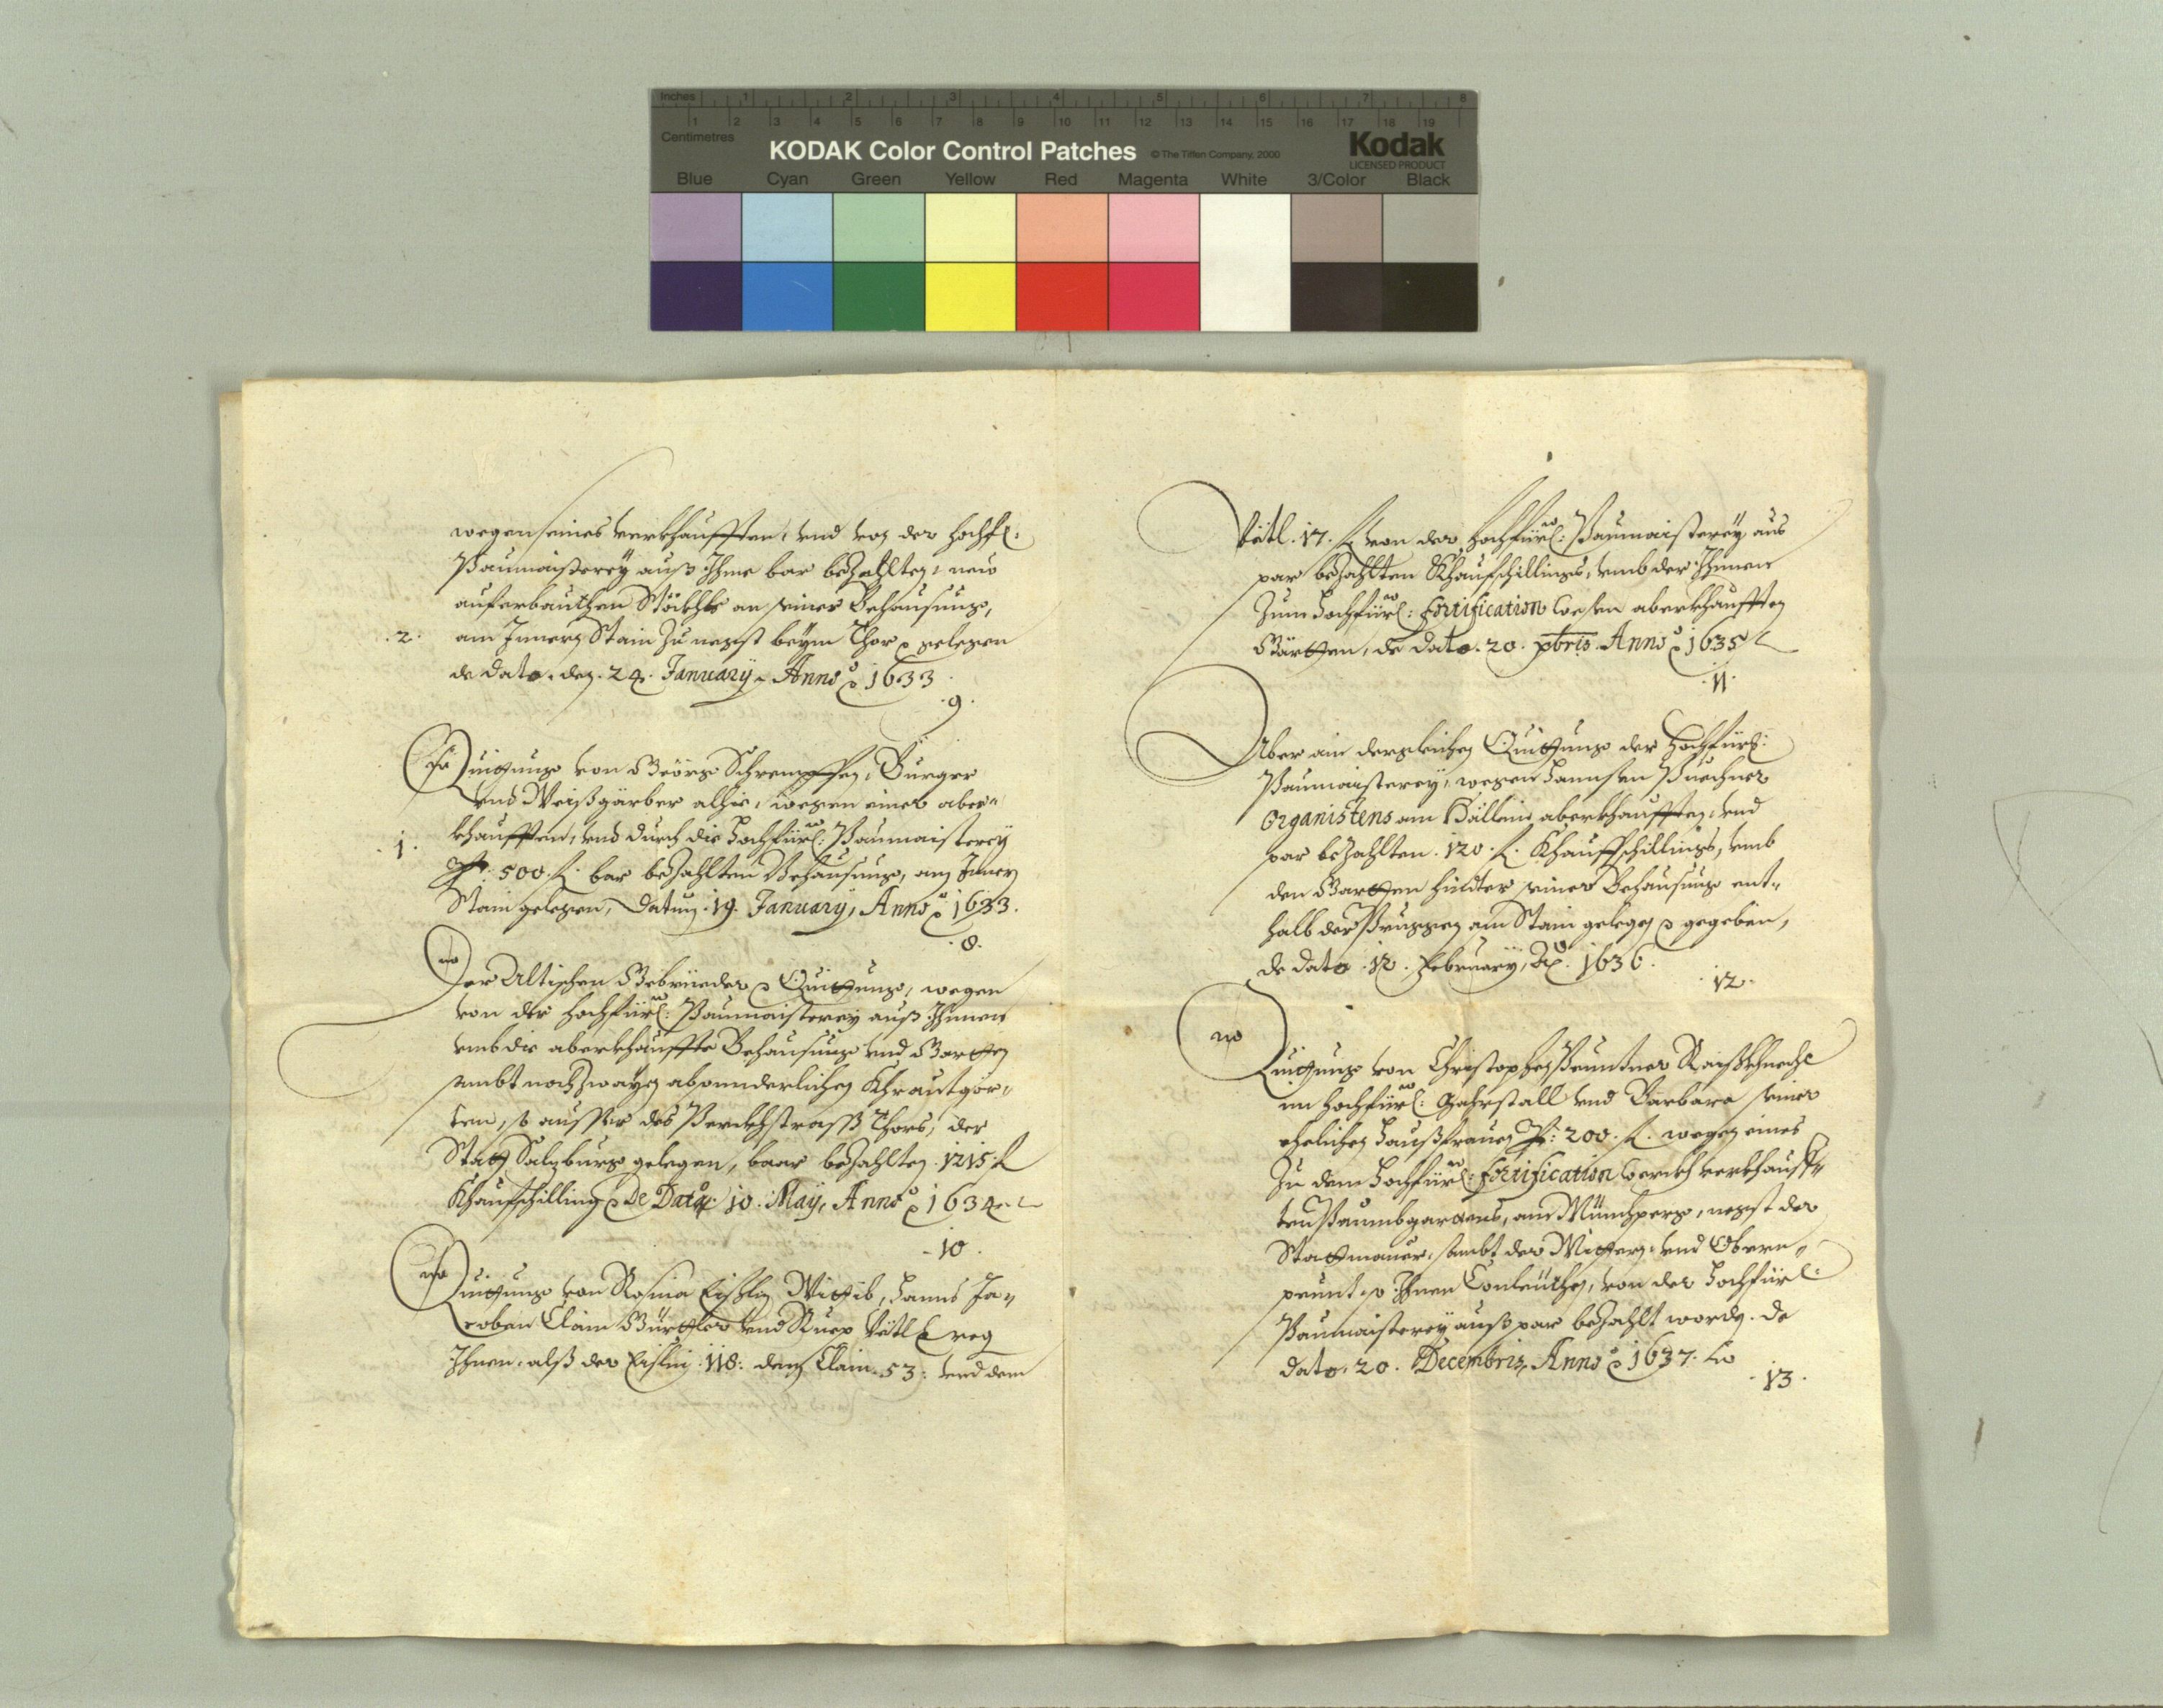 Inches 1 2 3 4 5 6 7 8
1 2 3 4 5 6 7 8 9 10 11 12 13 14 15 16 17 18 19
Centimetres
KODAK Color Control Patches © The Tiffen Company, 2000 Kodak
LICENSED PRODUCT
Blue Cyan Green Yellow Red Magenta White 3/Color Black
wegen seines verkhaufften, vnd von der hochfl:
Paumaisterey auß Ihme bar bezahlten, new
auferbauthen Stöckhls an seiner Behausung,
.2. am Innern Stain zu negst beym Thor gelegen
de dato. den. 24. January. Anno 1633
.9.
Quittung von Geörg Schrempffen, Burger
vnd Weißgärber alhie, wegen einer aber„
.1. khaufften, vnd durch die Hochfürl: Paumaisterey
Pr: 500. fl. bar bezahlten Behausung, am Innern
Stain gelegen, Datum. 19. January, Anno 1633.
.8.
Der Altischen Gebrüeder Quittung, wegen
von der hochfürl: Paumaisterey auß Ihnen
vmb die aberkhauffte Behausung vnd Gartten
sambt noch zwayen absonderlichen Khrautgär„
ten, so ausser des Perckhstrass Thors, der
Statt Salzburg gelegen, baar bezahlten. 1215 fl
Khaufschilling De Dato 10. May, Anno 1634.
.10.
Quittung von Rosina Eißlin Wittib, Hanns Ja„
coben Clain Gürtler vnd Ruep Vätl
Ihnen, alß der Eißlin. 118: dem Clain. 53: vnd dem
Vätl. 17. fl von der hochfürl: Paumaisterey, aus
par bezahlten Khaufschillings, vmb der Ihnen
zum Hochfürl: Fortification wesen aberkhaufften
Gärtten, de dato. 20. Xbris. Anno 1635
.11.
Aber ain dergleichen Quittung der Hochfürl:
Paumaisterey, wegen Hannsen Puechner
Organistens am Hällein aberkhaufften, vnd
par bezahlten. 120. fl. Khauffschillings, vmb
den Gartten hindter seiner Behausung ent„
halb der Pruggen am Stain gelegen gegeben,
de dato. 12. February, Ao. 1636.
.12.
Quittung von Christophen Peuntner Raißkhnecht
im hochfürl: Marstall vnd Barbara seiner
ehelichen Haußfrauen Pr: 200. fl. wegen eines
zu dem Hochfürl: Fortification werckh verkhauff„
ten Paumbgartens, am Münchperg, negst der
Stattmauer, sambt der Mittern vnd Obern„
peunt, so Ihnen Conleüthen, von der Hochfürl:
Paumaisterey auß par bezahlt worden. de
dato. 20. Decembris, Anno 1637.
.13.